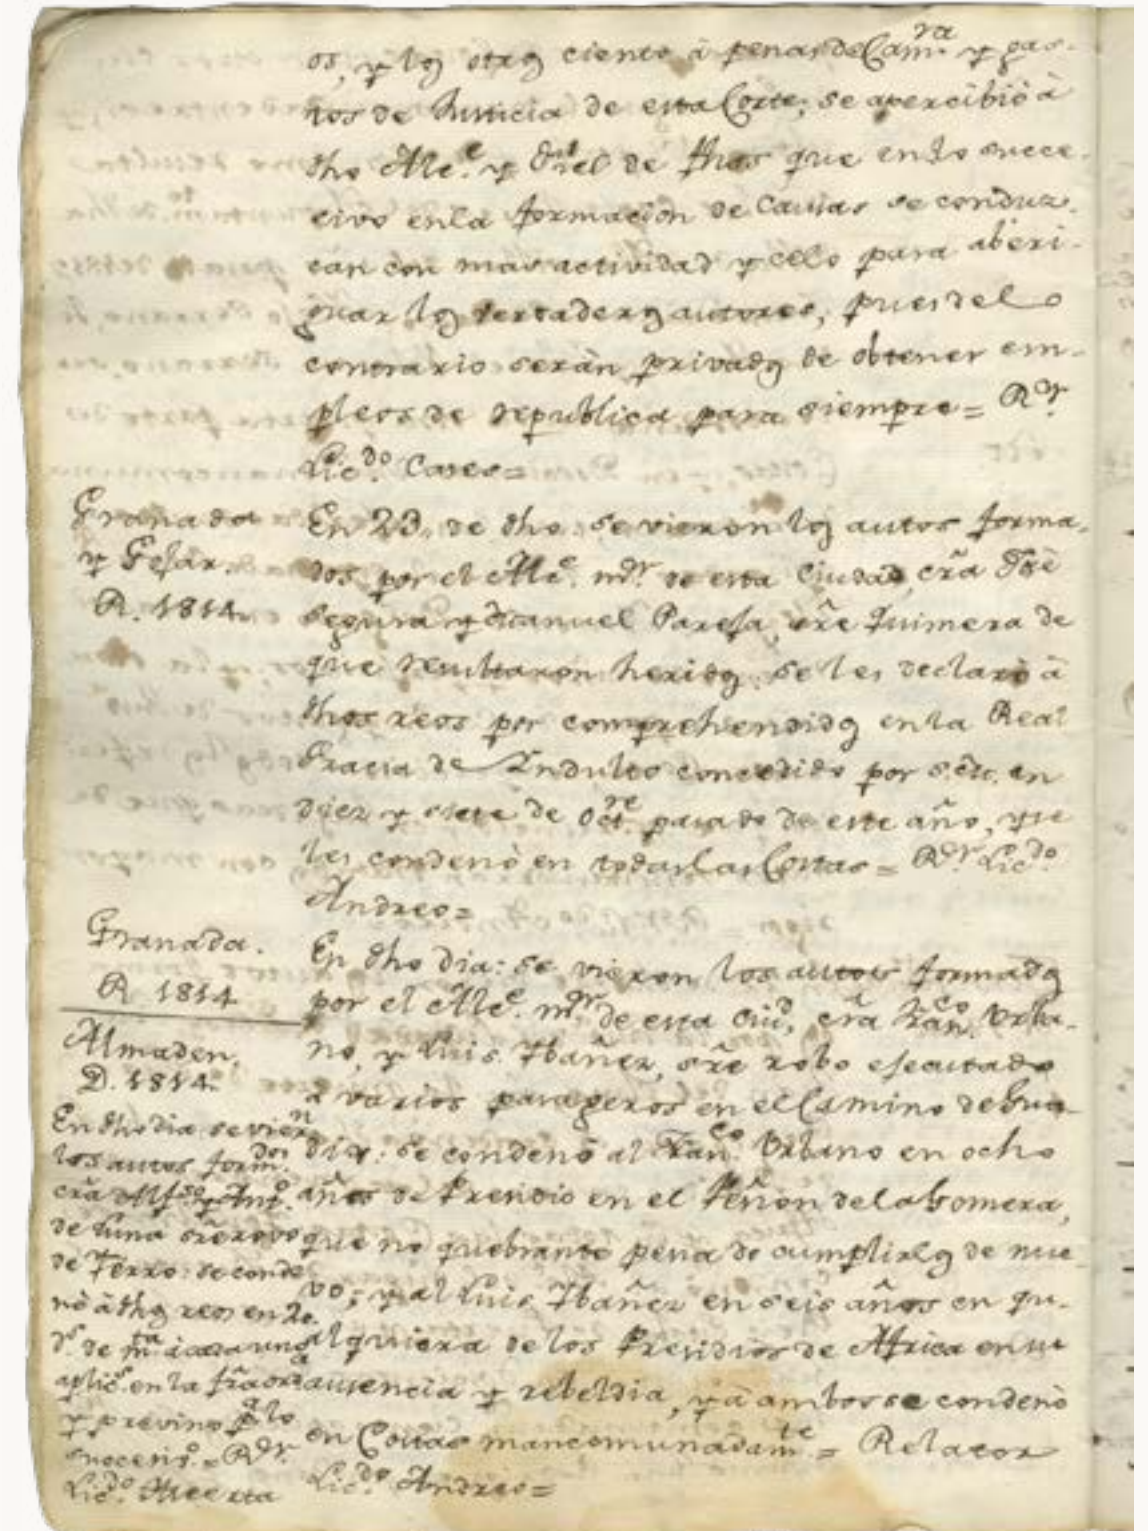 os, y los otros ciento à penas de Camra y gas-
tos de Justicia de esta Corte; se apercibiò à
dho Alce. y de fhos que en lo succe-
civo en la formacion de Causas se conduz-
can con mas actividad y celo para aberi-
guar los verdaderos autores, pues del
contrario seràn privados de obtener em-
pleos de republica para siempre= Ror.
Licdo. Cores=
Granada
y Gejar.
R. 1814.
En 23, de dho se vieron los autos forma-
dos por el Alce. mor. de esta Ciudad, cra José
segura y Manuel Pareja, sre Quimera de
que resultaron heridos, se les declarò à
dhos reos por comprehendidos en la Real
Gracia de Indulto concedido por S.M. en
diez y siete de octre. pasado de este año, y se
les condenò en todas las Costas= Ror. Licdo.
Andreo=
Granada.
R 1814
En dho dia: se vieron los autos formados
por el Alce. mor. de esta Ciud, cra Franco. Urba-
no, y Luis Ibañez, sre robo ejecutado
à varios pasageros en el Camino de Gua-
dix: se condenò al Franco. Urbano en ocho
años de Presidio en el Peñon de la Gomera,
que no quebrante pena de cumplirlos de nue-
vo; y al Luis Ibañez en seis años en qu-
alquiera de los Presidios de Africa en su
ausencia y rebeldia, y à ambos se condenò
en Costas mancomunadamte.= Relator
Licdo. Andreo=
Almaden.
D. 1814.
En dho dia se vieron
los autos formdos.
cra Alfso. y Anto.
de Luna sre robo
de Ferro: se conde-
nò à dhos reos en 20
ds. de mta. à cada uno
aplics. en la fra ora
y previno pa. lo
succesivo.= Ror.
Licdo.